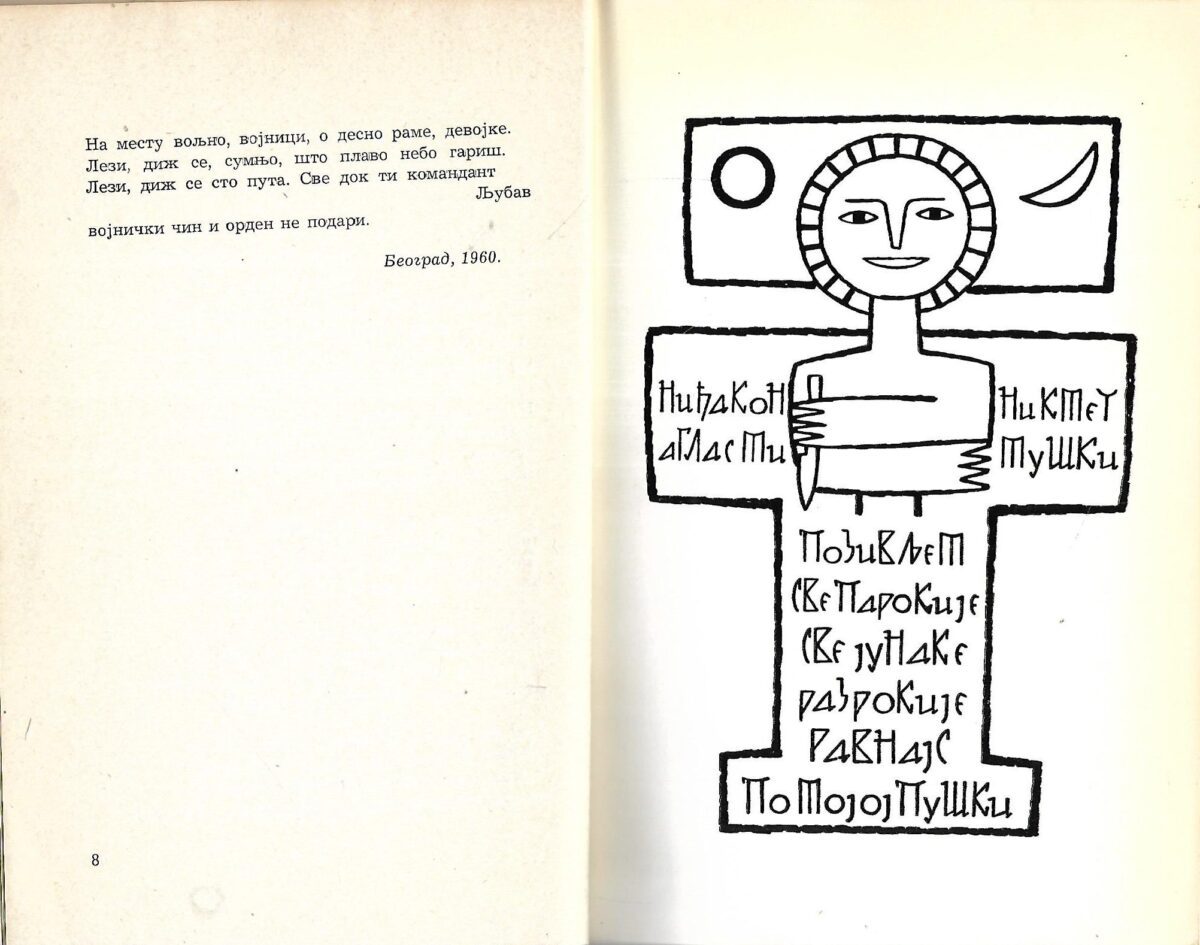 На месту вољно, војници, о десно раме, девојке.
Лези, диж се, сумњо, што плаво небо гариш.
Лези, диж се сто пута. Све док ти командант
Љубав
војнички чин и орден не подари.
Београд, 1960.
8
НиђаКоН
аГЛасТи
НиКТеТ
ТуШКи
ПоЗиВЉеТ
СВе ПароКије
СВе јуНаКе
раЗроКије
РаВНајС
По ТојојПуШКи